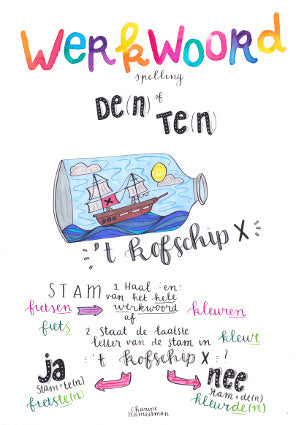 Werkwoord
spelling
DE(n) of
TE(n)
't kofschip x
STAM 1. Haal en
van het hele
fietsen werkwoord af kleuren
fiets 2. Staat de laatste kleur
letter van de stam in
ja 't kofschip x ? nee
stam+te(n) stam+de(n)
fietste(n) kleurde(n)